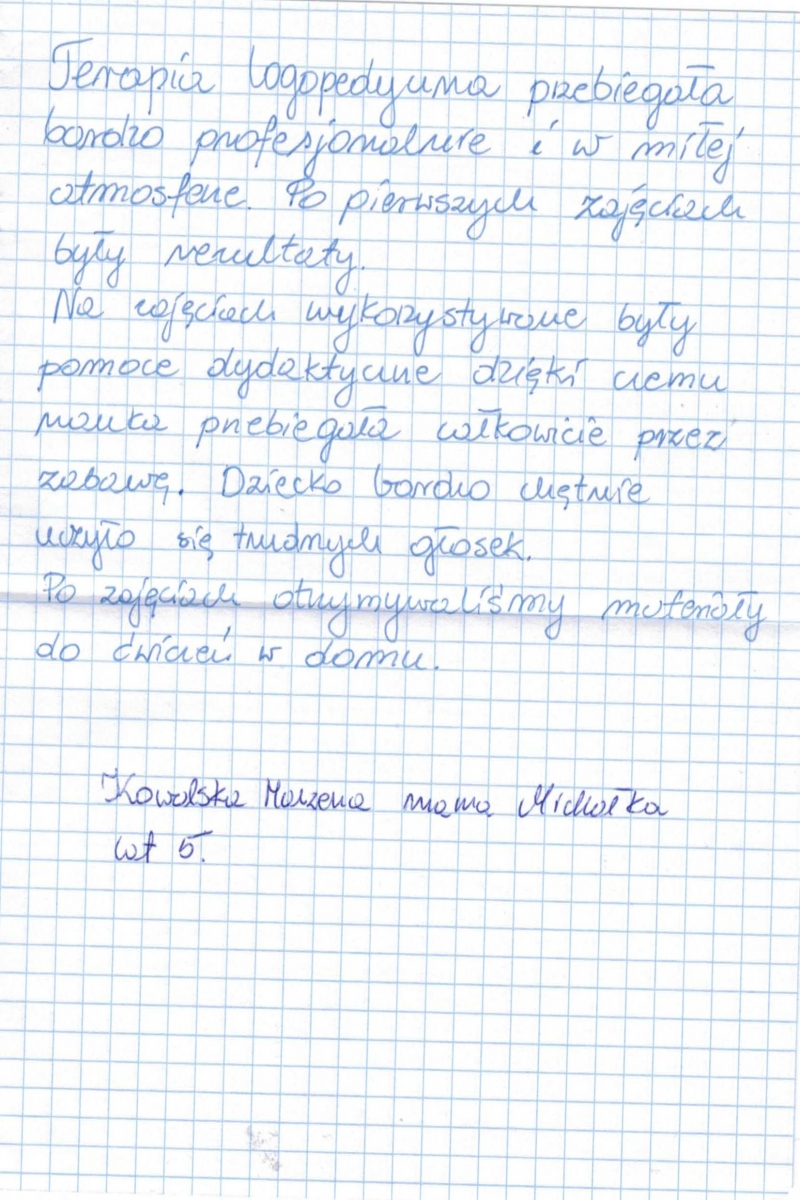 Terapia logopedyczna przebiegała
bardzo profesjonalnie i w miłej
atmosferze. Po pierwszych zajęciach
były rezultaty.
Na zajęciach wykorzystywane były
pomoce dydaktyczne dzięki czemu
nauka przebiegała całkowicie przez
zabawę. Dziecko bardzo chętnie
uczyło się trudnych głosek.
Po zajęciach otrzymywaliśmy materiały
do ćwiczeń w domu.
Kowalska Marzena mama Michałka
lat 5.